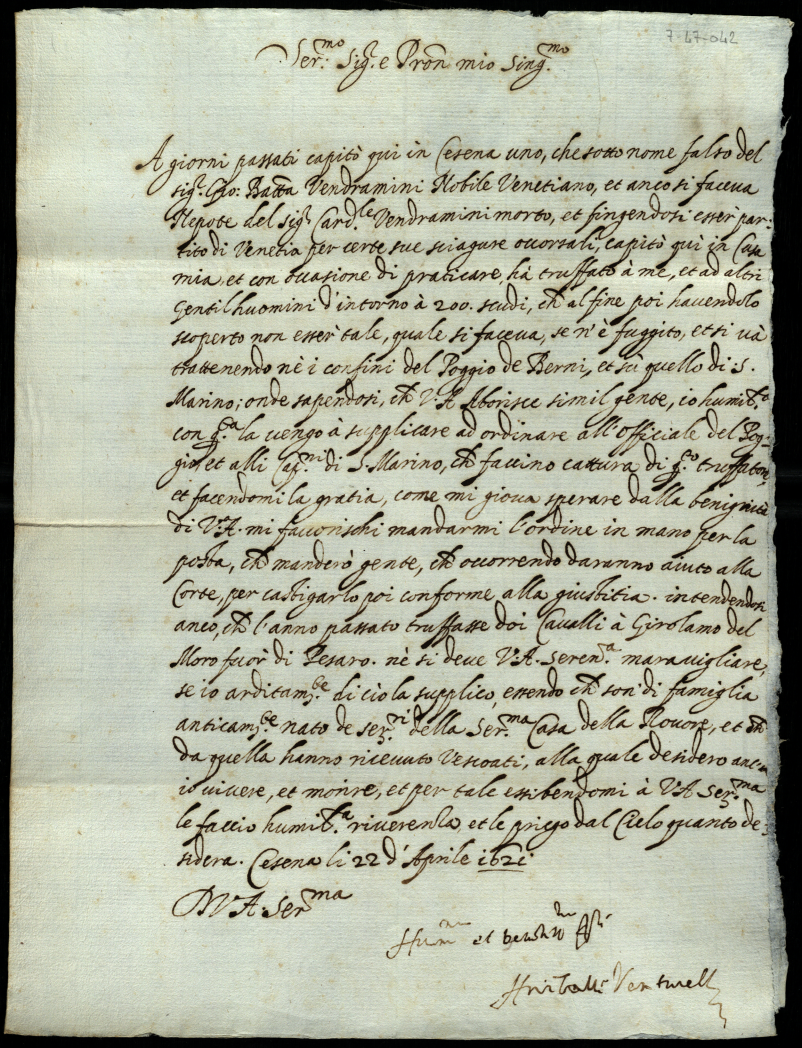 7-47-042
Ser.mo Sig.r e Pron mio Sing.mo
A giorni passati capitò qui in Cesena uno, che sotto nome falso del
sig.r Gio: Batta Vendramini Nobile Venetiano, et anco si faceva
Nepote del sig.r Card.le Vendramini morto, et fingendosi esser par-
tito di Venetia per certe sue sciagure occorsali, capitò quì in Casa
mia, et con occasione di praticare, hà truffato à me, et ad altri
Gentilhuomini d'intorno à 200. scudi, ch al fine poi havendolo
scoperto non esser tale, quale si faceva, se n'è fuggito, et si và
trattenendo nè i confini del Poggio de Berni, et sù quello di S.
Marino; onde sapendosi, ch V.A. Aborisce simil gente, io humil.ta
con q.ta la vengo à supplicare ad ordinare all'officiale del Pog-
gio, et alli Cap.ni di S. Marino, ch faccino cattura di q.to truffatore,
et facendomi la gratia, come mi giova sperare dalla benignità
di V.A. mi favorischi mandarmi l'ordine in mano per la
posta, ch manderò gente, ch occorrendo daranno aiuto alla
Corte, per castigarlo poi conforme alla giustitia. intendendosi
anco, ch l'anno passato truffasse doi Cavalli à Girolamo del
Moro fuor di Pesaro. nè si deve V.A. Seren.a maravigliare,
se io arditam.te di ciò la supplico, essendo ch son di famiglia
anticam.te nato de ser.ri della Ser.ma Casa della Rovore, et ch
da quella hanno ricevuto Vescoati, alla quale desidero anco
io vivere, et morire, et per tale essibendomi à V.A. Ser.ma
le faccio humil.ta riverenza, et le priego dal Cielo quanto de-
sidera. Cesena li 22 d'Aprile 1621
D V.A. Ser.ma
Hum.mo et